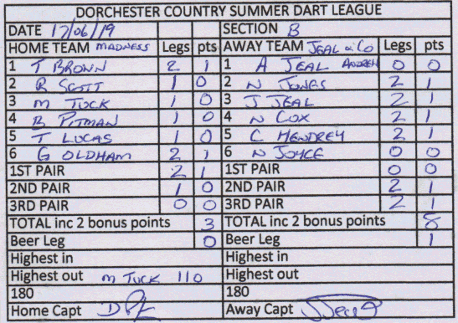 DORCHESTER COUNTRY SUMMER DART LEAGUE
DATE 12/06/19 SECTION B
HOME TEAM MADNESS Legs pts AWAY TEAM JEAL & Co Legs pts
1 T BROWN 2 1 1 A JEAL ANDREW 0 0
2 R SCOTT 1 0 2 N JONES 2 1
3 M TUCK 1 0 3 J JEAL 2 1
4 B PITMAN 1 0 4 N COX 2 1
5 T LUCAS 1 0 5 C HENDREY 2 1
6 G OLDHAM 2 1 6 N JOYCE 0 0
1ST PAIR 2 1 1ST PAIR 0 0
2ND PAIR 1 0 2ND PAIR 2 1
3RD PAIR 0 0 3RD PAIR 2 1
TOTAL inc 2 bonus points 3 TOTAL inc 2 bonus points 8
Beer Leg 0 Beer Leg 1
Highest in Highest in
Highest out M TUCK 110 Highest out
180 180
Home Capt Away Capt